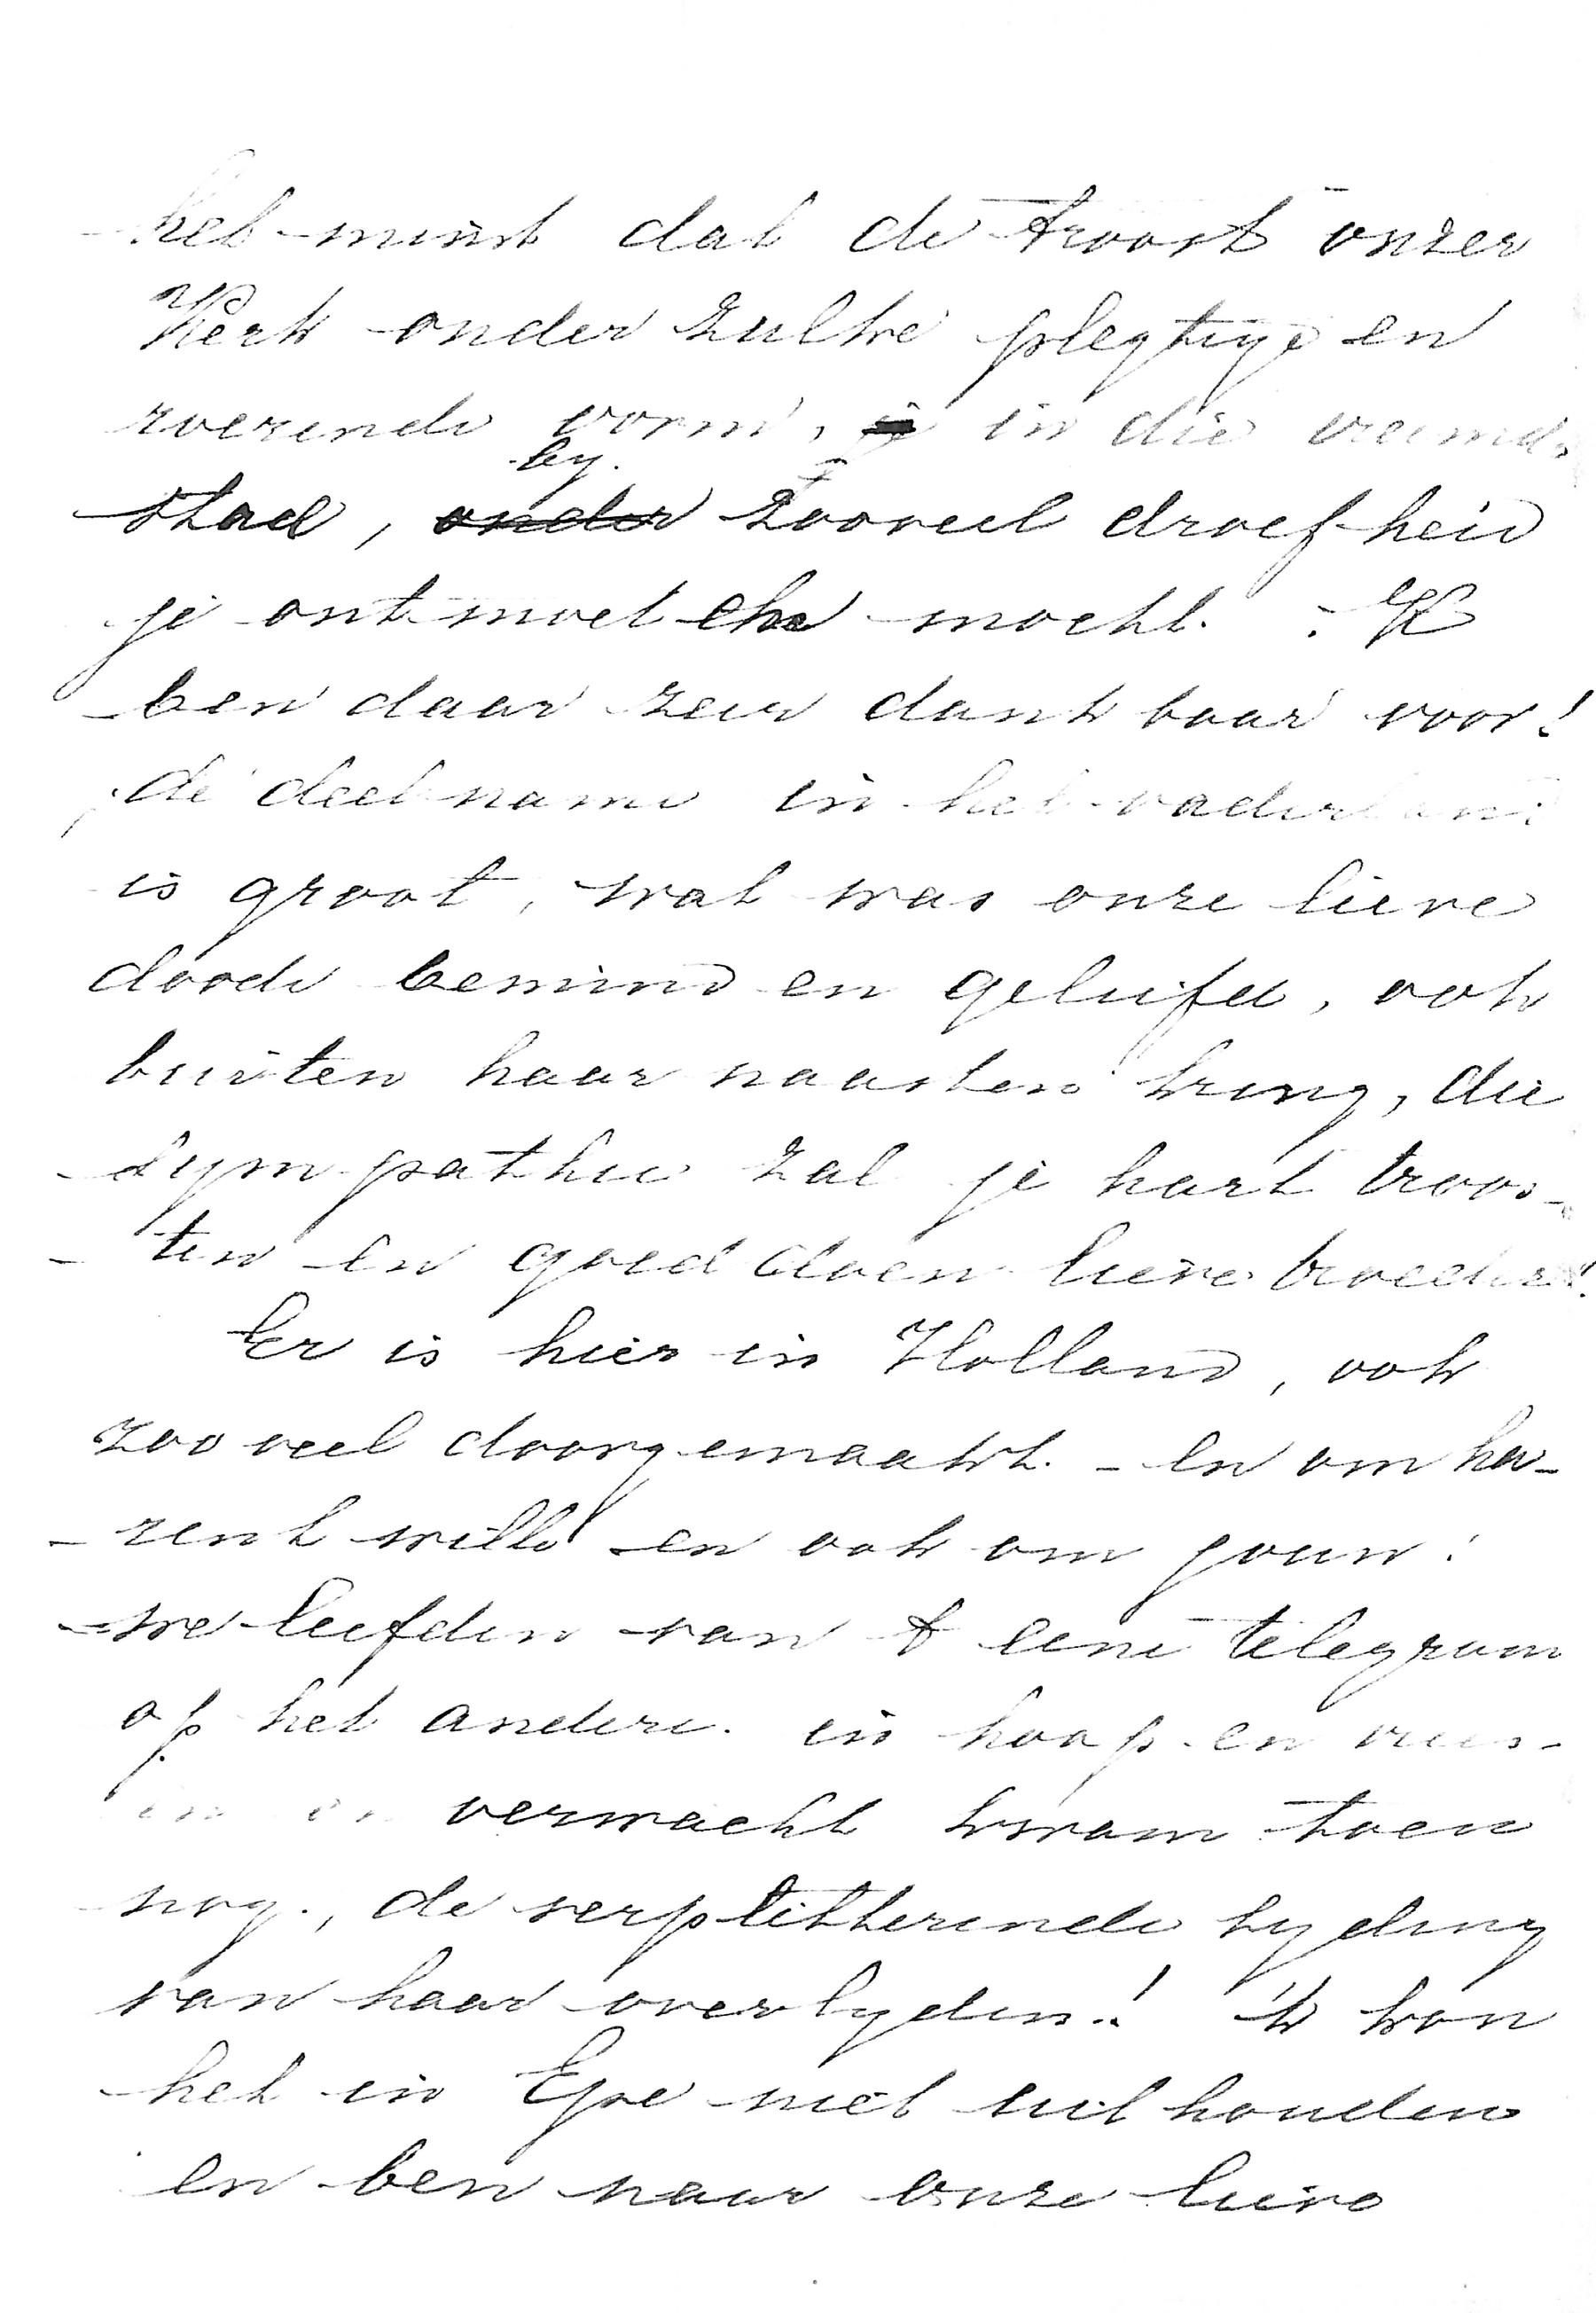 het minst dat de troost onzer
Kerk onder zulke plegtige en
roerende vorm, in die vreemde
stad, by zooveel droefheid
je ontmoeten mocht. Ik
ben daar zeer dankbaar voor!
de deelname in het vaderland
is groot, wat was onze lieve
doode bemind en geliefd, ook
buiten haar naasten kring, die
sympathie zal je hart troos-
-ten en goed doen lieve broeder!
Er is hier in Holland, ook
zoo veel doorgemaakt. - en om ha-
-rent wille en ook om jouw!
we leefden van 't eene telegram
op het andere. in hoop en vrees-
verwacht kwam toen
nog, de verpletterende tyding
van haar overlyden! 'k kon
het in Epe niet uithouden
en ben naar onze lieve